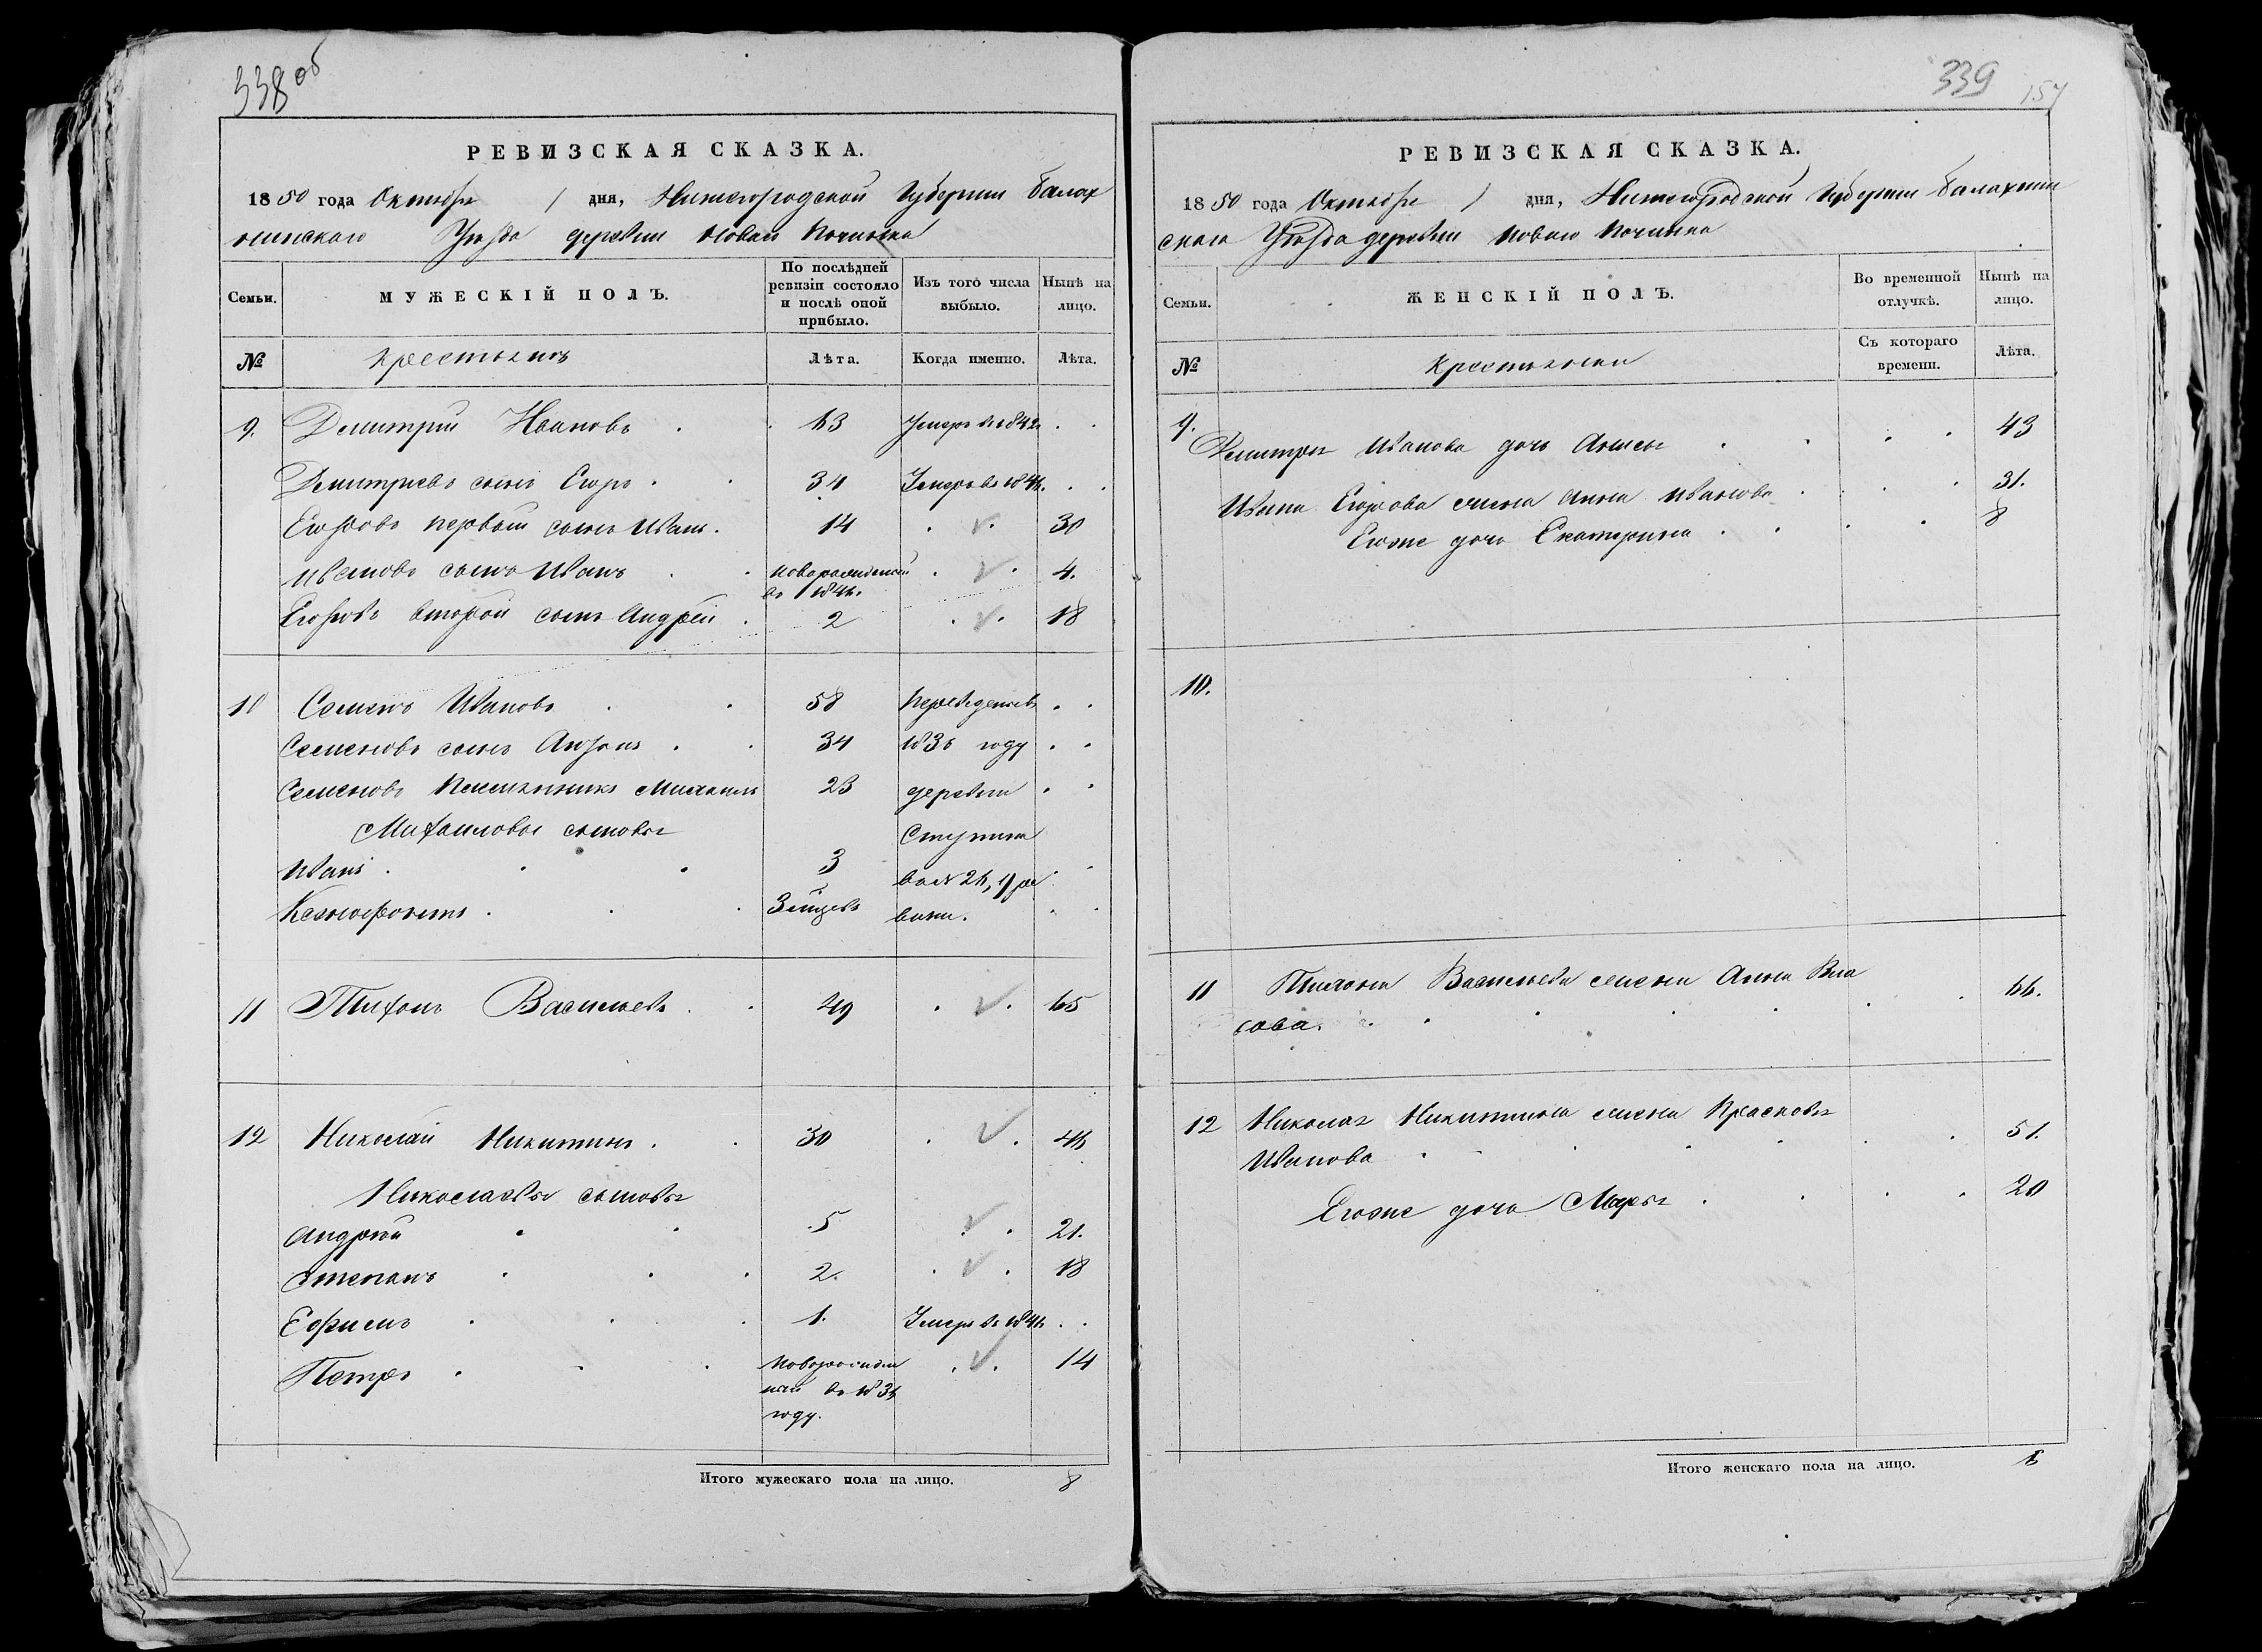 338 об
РЕВИЗСКАЯ СКАЗКА.
1850 года Октября 1 дня, Нижегородской Губернии Балах
нинскаго Уезда деревни Новаго Починка
Семьи. МУЖЕСКІЙ ПОЛЪ. По послѣдней ревизіи состояло и послѣ оной прибыло. Изъ того числа выбыло. Нынѣ на лицо.
№ Крестьянъ Лѣта. Когда именно. Лѣта.
9. Дмитрий Ивановъ 63 Умеръ въ 1842
Дмитриевъ сынъ Егоръ 34 Умеръ въ 1846.
Егоровъ первый сынъ Иванъ. 14 30
Ивановъ сынъ Иванъ новорожденный 4.
въ 1846.
Егоровъ второй сынъ Андрей 2 18
10 Семенъ Ивановъ 58 переведены въ
Семеновъ сынъ 34 1836 году
Семеновъ племянникъ Михаилъ 23 деревни
Михаиловы сыновья Ступина
Иванъ 3 26,
Ксенофонтъ
11 Тихонъ Васильевъ 49 65
12 Николай Никитинъ 30 46
Николаевы сыновья
Андрей 5 21.
Степанъ 2. 18
Ефимъ 1. Умеръ въ 1846
Петръ новорожден 14
ный въ 1836
году.
Итого мужескаго пола на лицо. 8
339 157
РЕВИЗСКАЯ СКАЗКА.
1850 года Октября 1 дня, Нижегородской Губернии Балахнин
скаго Уезда деревни Новаго Починка
Семьи. ЖЕНСКІЙ ПОЛЪ. Во временной отлучкѣ. Нынѣ на лицо.
№ Крестьянки Съ котораго времени. Лѣта.
9. Дмитрия Иванова дочь 43
Ивана Егорова жена Анна Иванова 31.
Егоже дочь Екатерина 8
10.
11 Тихона Васильева жена Анна Вла
сова. 66.
12 Николая Никитина жена Прасковья
Иванова 51.
Егоже дочь Марья 20
Итого женскаго пола на лицо. 6